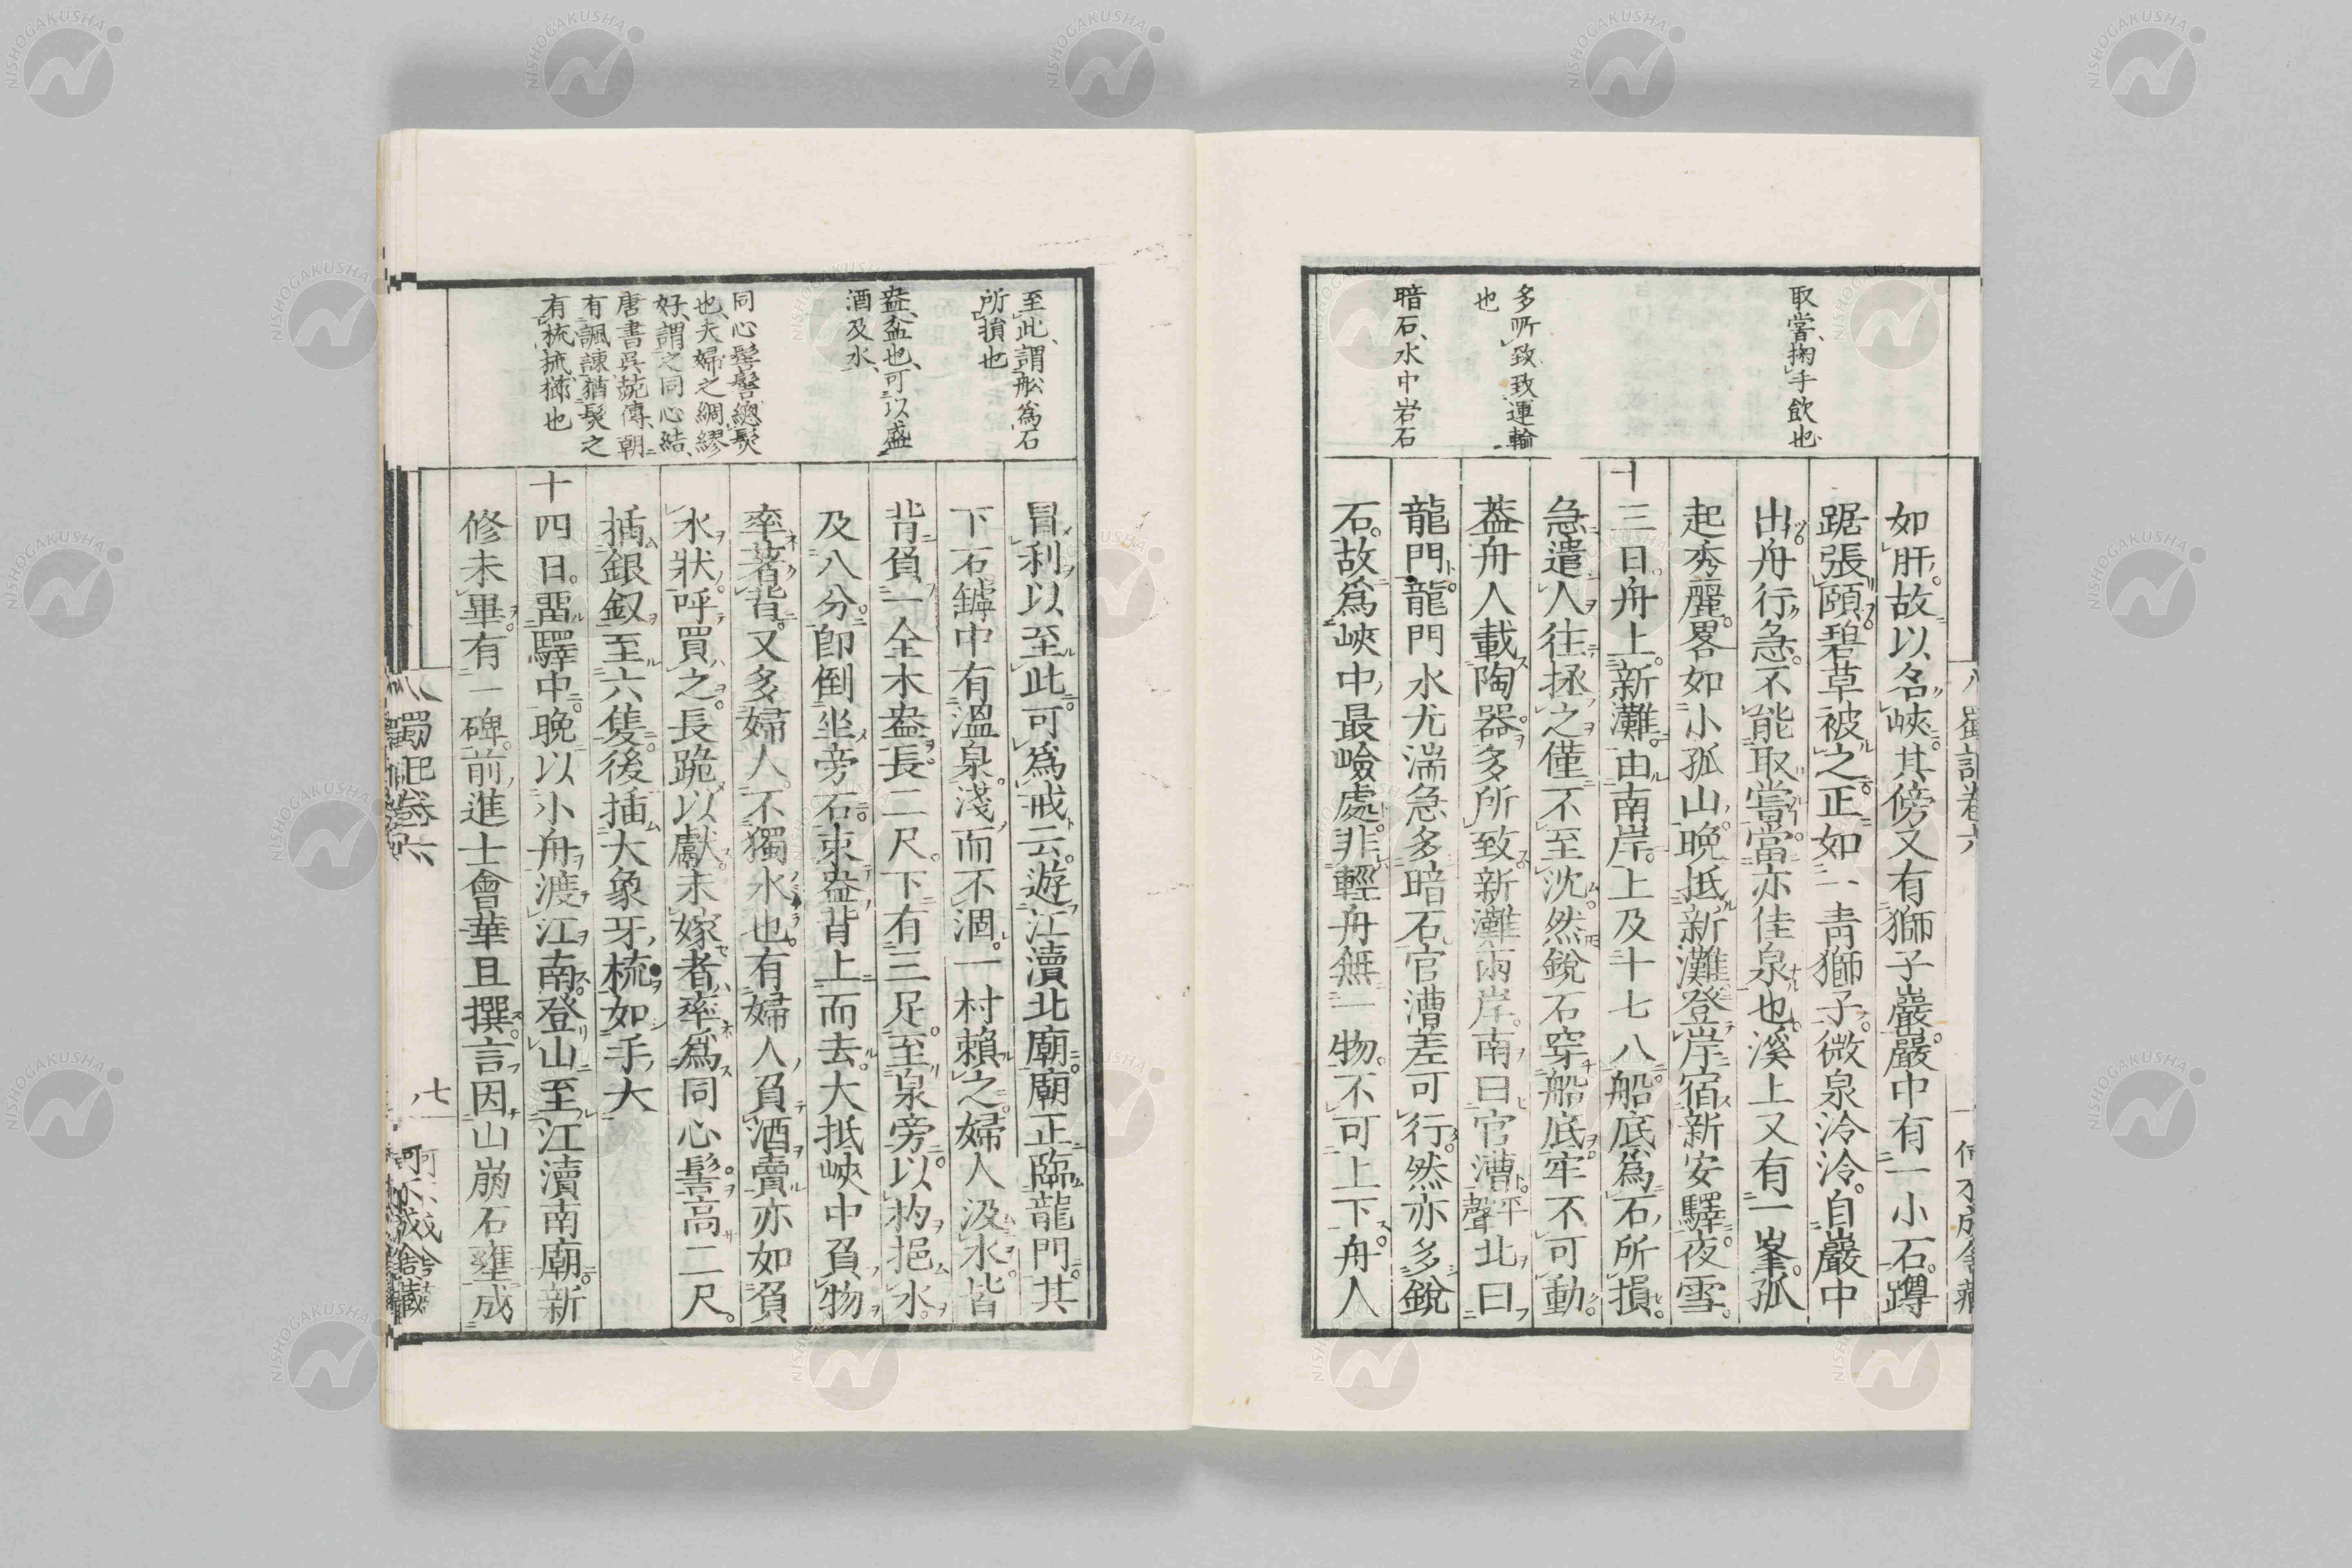 取嘗、掬手飲也
多所致、致運輸
也
暗石、水中岩石
如肝故以名峽其傍又有獅子巖巖中有一小石蹲
踞張頤碧草被之正如一青獅子微泉泠泠自巖中
出舟行急不能取嘗當亦佳泉也溪上又有一峯孤
起秀麗畧如小孤山晚抵新灘登岸宿新安驛夜雪
十三日舟上新灘由南岸上及十七八船底爲石所損
急遣人往拯之僅不至沈然銳石穿船底牢不可動
蓋舟人載陶器多所致新灘兩岸南曰官漕平聲北曰
龍門龍門水尤湍急多暗石官漕差可行然亦多銳
石故爲峽中最嶮處非輕舟無一物不可上下舟人
至此、謂舩爲石
所損也
盎、盆也、可以盛
酒及水、
同心髻、髻總髮
也、夫婦之綢繆
好、謂之同心結、
唐書吳兢傳、朝
有諷諫、猶髮之
有梳、梳櫛也
冒利以至此可爲戒云遊江瀆北廟廟正臨龍門其
下石罅中有溫泉淺而不涸一村賴之婦人汲水皆
背負一全木盎長二尺下有三足至泉旁以杓挹水
及八分卽倒坐旁石束盎背上而去大抵峽中負物
率著背又多婦人不獨水也有婦人負酒賣亦如負
水狀呼買之長跪以獻未嫁者率爲同心髻高二尺
插銀釵至六隻後插大象牙梳如手大
十四日畱驛中晚以小舟渡江南登山至江瀆南廟新
修未畢有一碑前進士曾華旦撰言因山崩石壅成
蜀記卷六
七